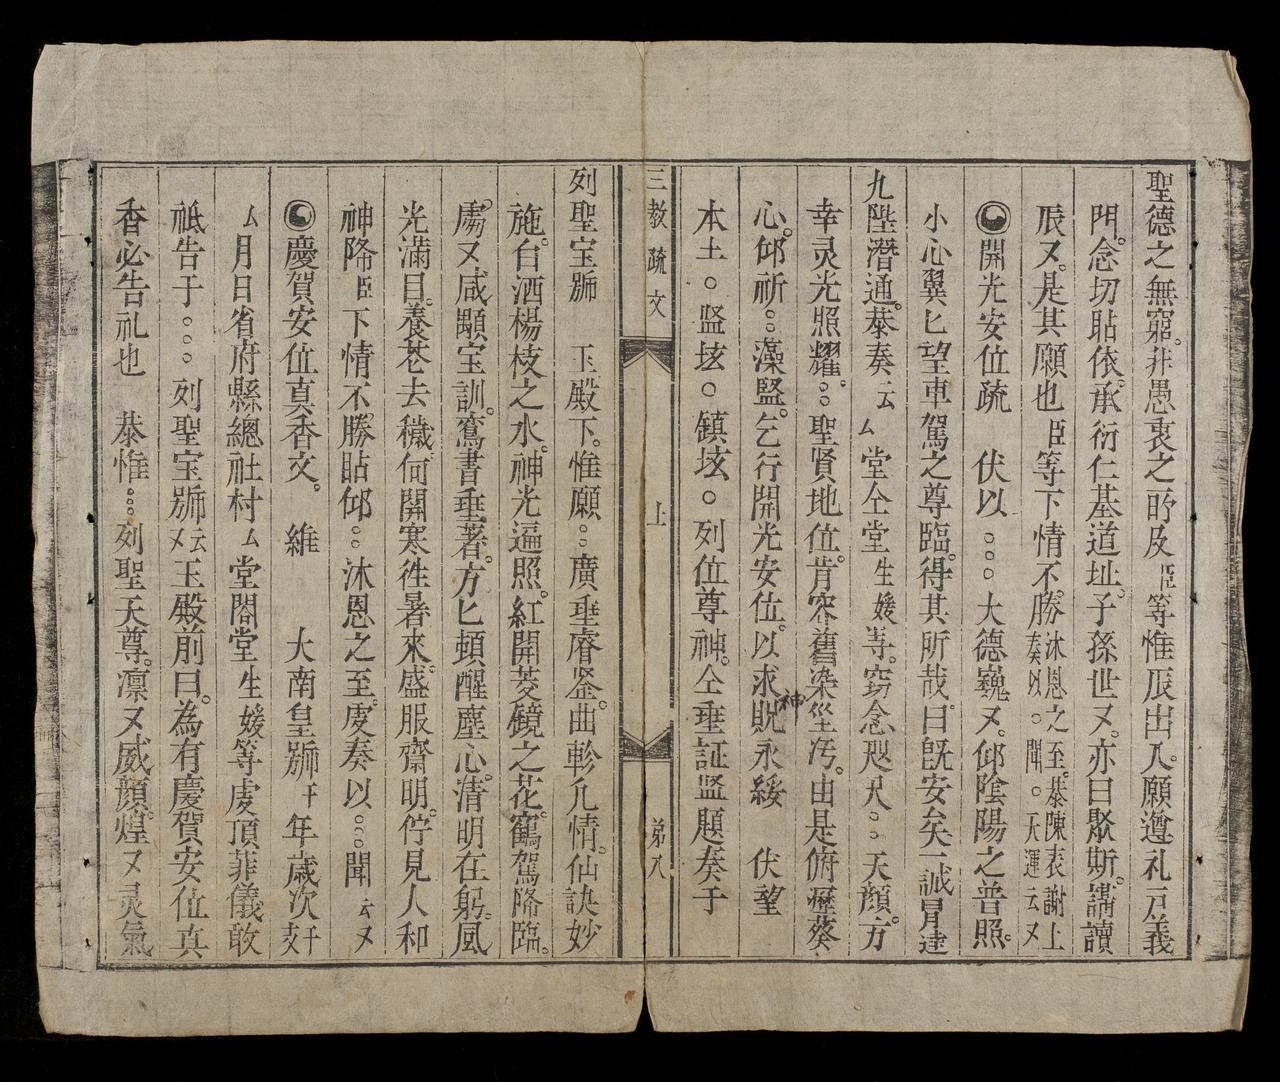 聖德之無窮。非愚衷之所及臣等惟辰出入。願遵礼戸義
門。念切貼依。承衍仁基道址。子孫世又。亦曰聚斯。講讀
辰又。是其願也臣等下情不勝沐恩之至。恭陳表謝上奏以○聞○天運云又
開光安位疏 伏以○○○大德巍又。仰陰陽之普照。
小心翼匕望車駕之尊臨。得其所哉。曰旣安矣一誠冐達
九陛潛通。恭奏云厶堂仝堂生媛等。窃念咫尺○○天顏。方
幸灵光照耀。○○聖賢地位。肯容舊染尘汚。由是俯瀝葵
心。仰祈○○藻監。乞行開光安位。以求貺神永綏 伏望
本土○监垓○鎮垓○列位尊神。仝垂証监題奏于
三教疏文 上 弟八
列聖宝號 玉殿下。惟願○○廣垂睿鉴。曲軫凡情。仙訣妙
施。白洒楊枝之水。神光遍照。紅開菱鏡之花。鶴駕降臨。
又咸顯宝訓。鸞書垂著。方匕頓醒塵心。清明在躬。風
光滿目。養花去穢。何開寒徃暑來。盛服齋明。佇見人和
神降臣下情不勝貼仰○○沐恩之至。虔奏以○○○聞云又
慶賀安位真香文。 維 大南皇號干年歲次干支
厶月日省府縣總社村厶堂閣堂生媛等虔頂菲儀敢
祇告于○○○列聖宝號云又玉殿前曰。為有慶賀安位真
香必告礼也 恭惟○○○列聖天尊。凛又威顏。煌又灵氣